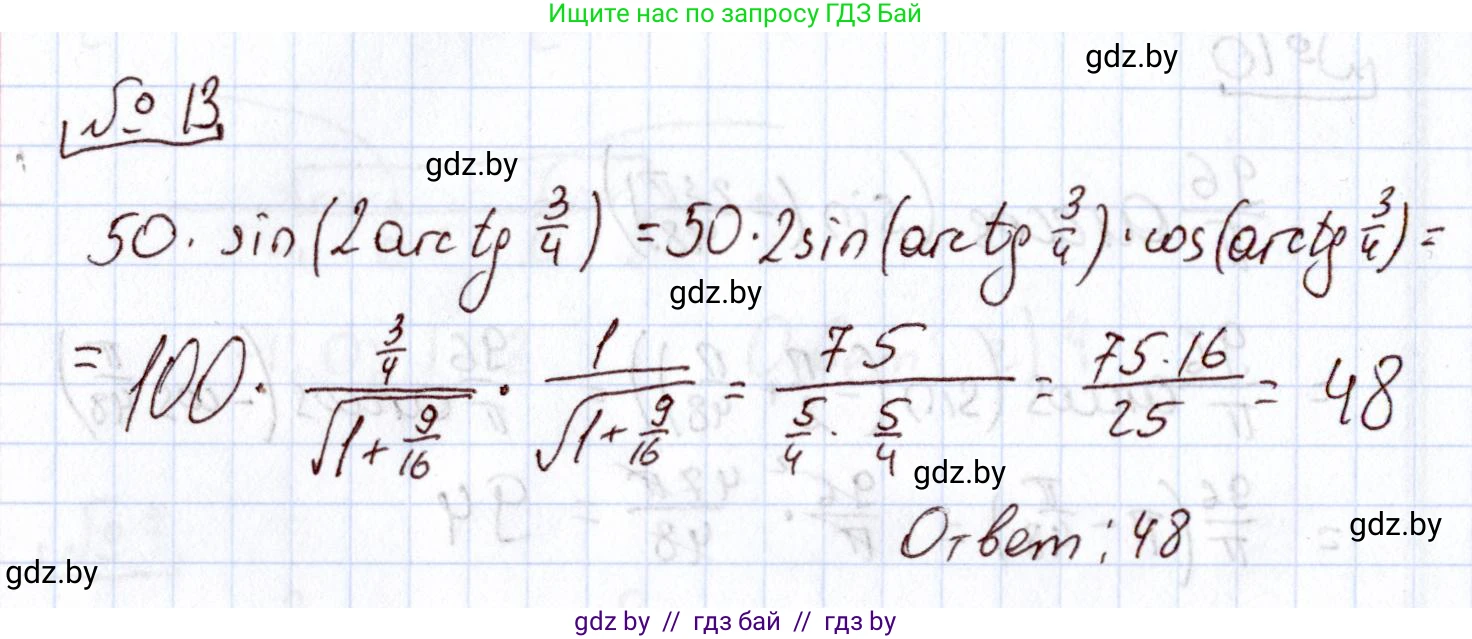 Ищите нас по запросу ГДЗ Бай
gdz.by
№ 13
gdz.by
50 · sin(2 arctg 3/4) = 50 · 2 sin(arctg 3/4) · cos(arctg 3/4) =
gdz.by
= 100 · (3/4)/√(1 + 9/16) · 1/√(1 + 9/16) = 75/(5/4 · 5/4) = (75 · 16)/25 = 48
gdz.by
Ответ: 48
gdz.by
gdz.by
gdz by // гдз бай // гдз by